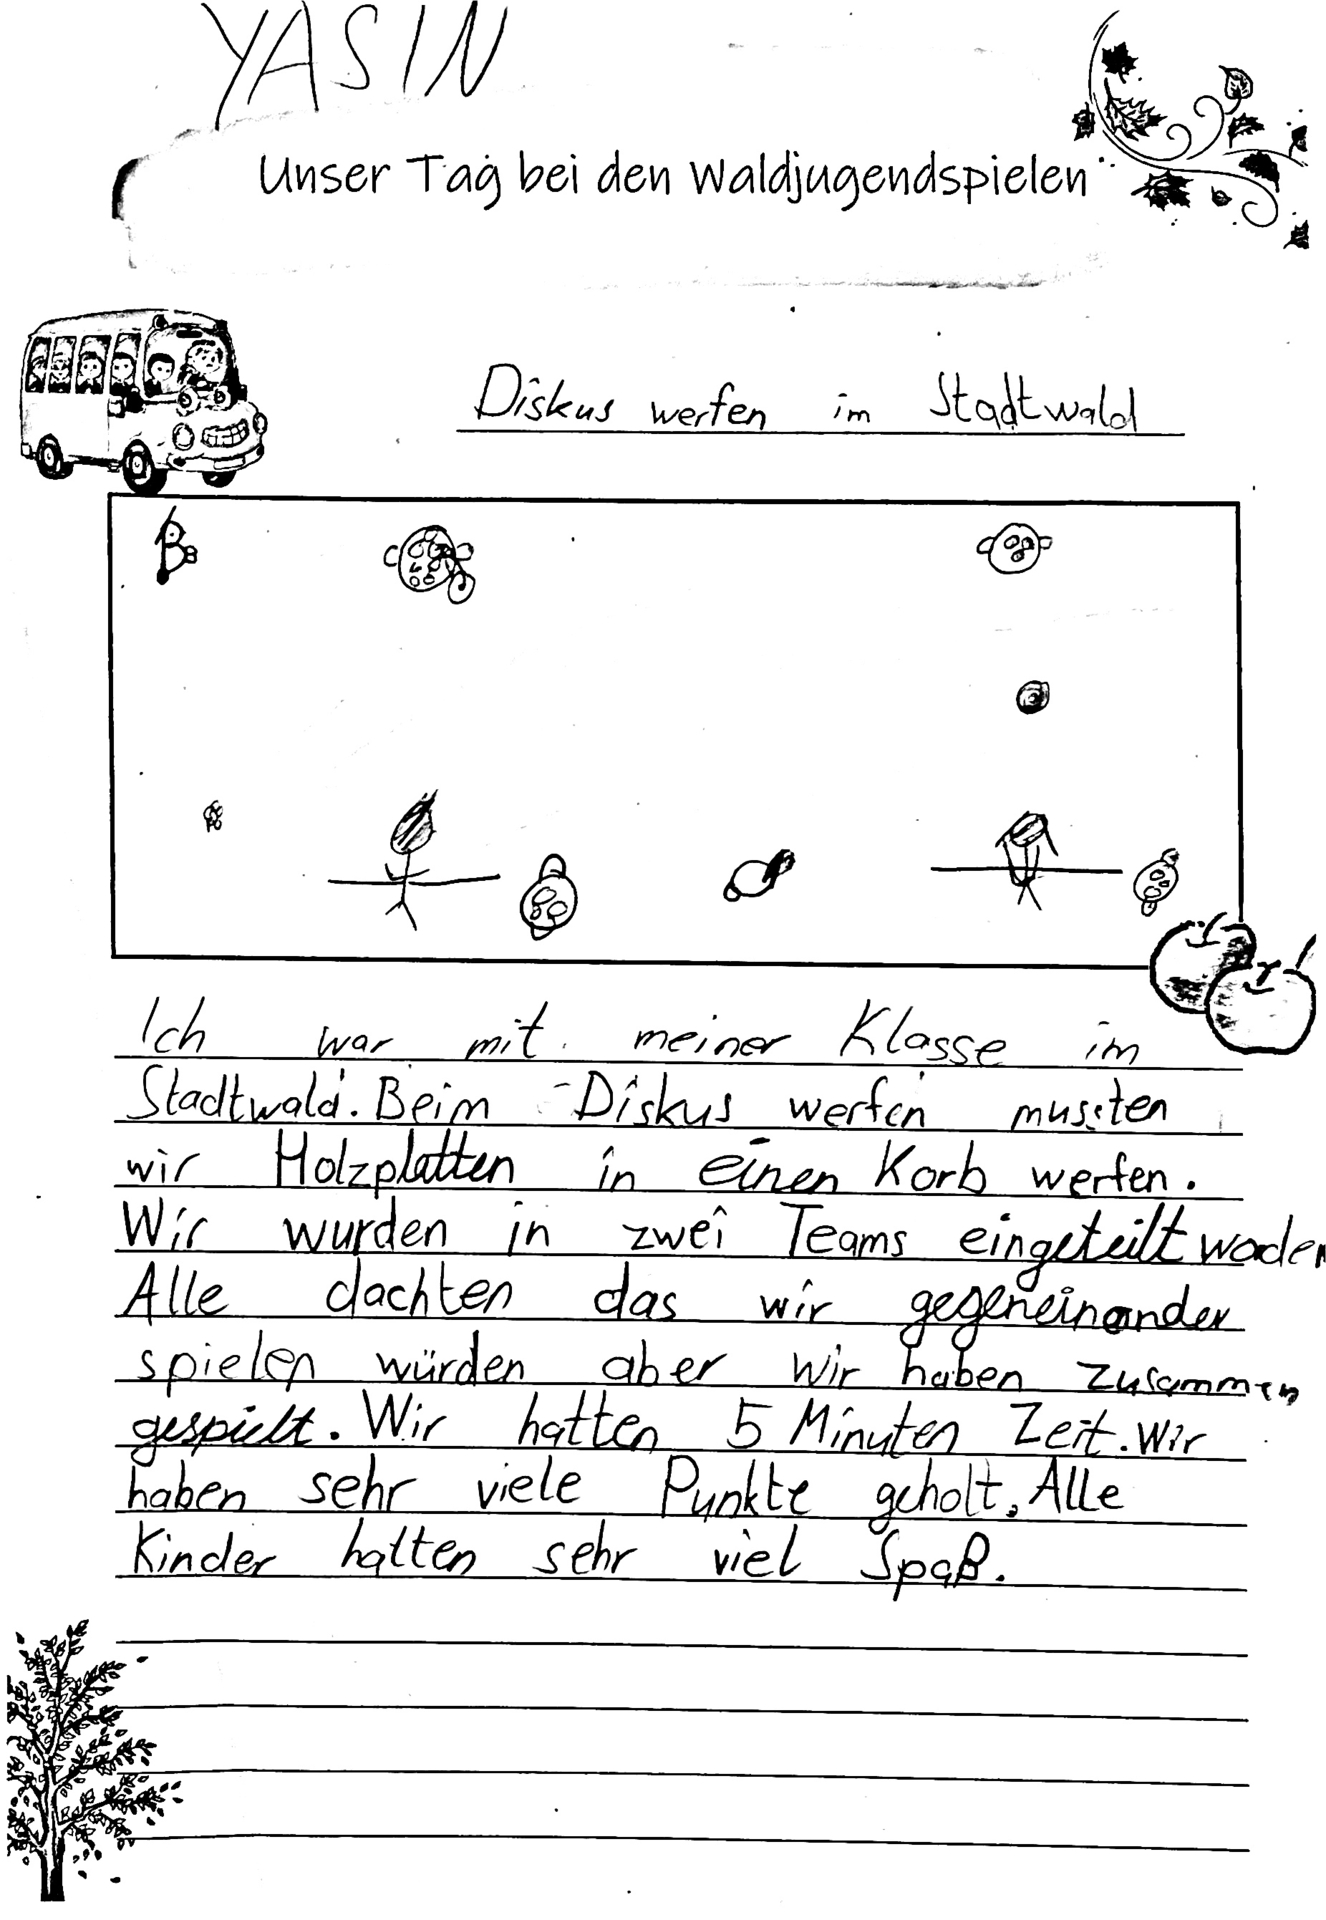 YASIN
Unser Tag bei den Waldjugendspielen
Diskus werfen im Stadtwald
Ich war mit meiner Klasse im
Stadtwald. Beim Diskus werfen mussten
wir Holzplatten in einen Korb werfen.
Wir wurden in zwei Teams eingeteilt woden
Alle dachten das wir gegeneinander
spielen würden aber wir haben zusammen
gespielt. Wir hatten 5 Minuten Zeit. Wir
haben sehr viele Punkte geholt. Alle
Kinder hatten sehr viel Spaß.